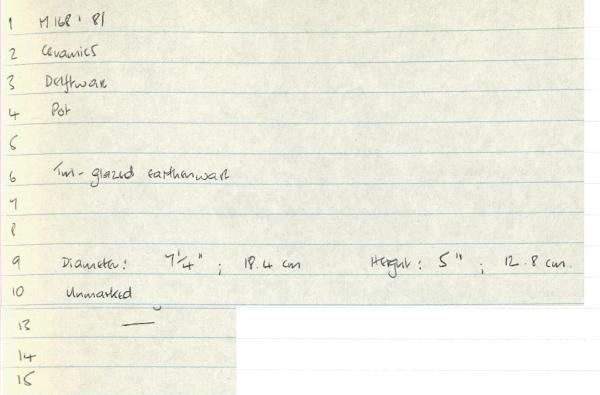 1 M168'81
2 Ceramics
3 Delftware
4 Pot
5
6 Tin-glazed earthenware
7
8
9 Diameter: 7 1/4" ; 18.4 cm Height: 5" ; 12.8 cm.
10 Unmarked
13 —
14
15